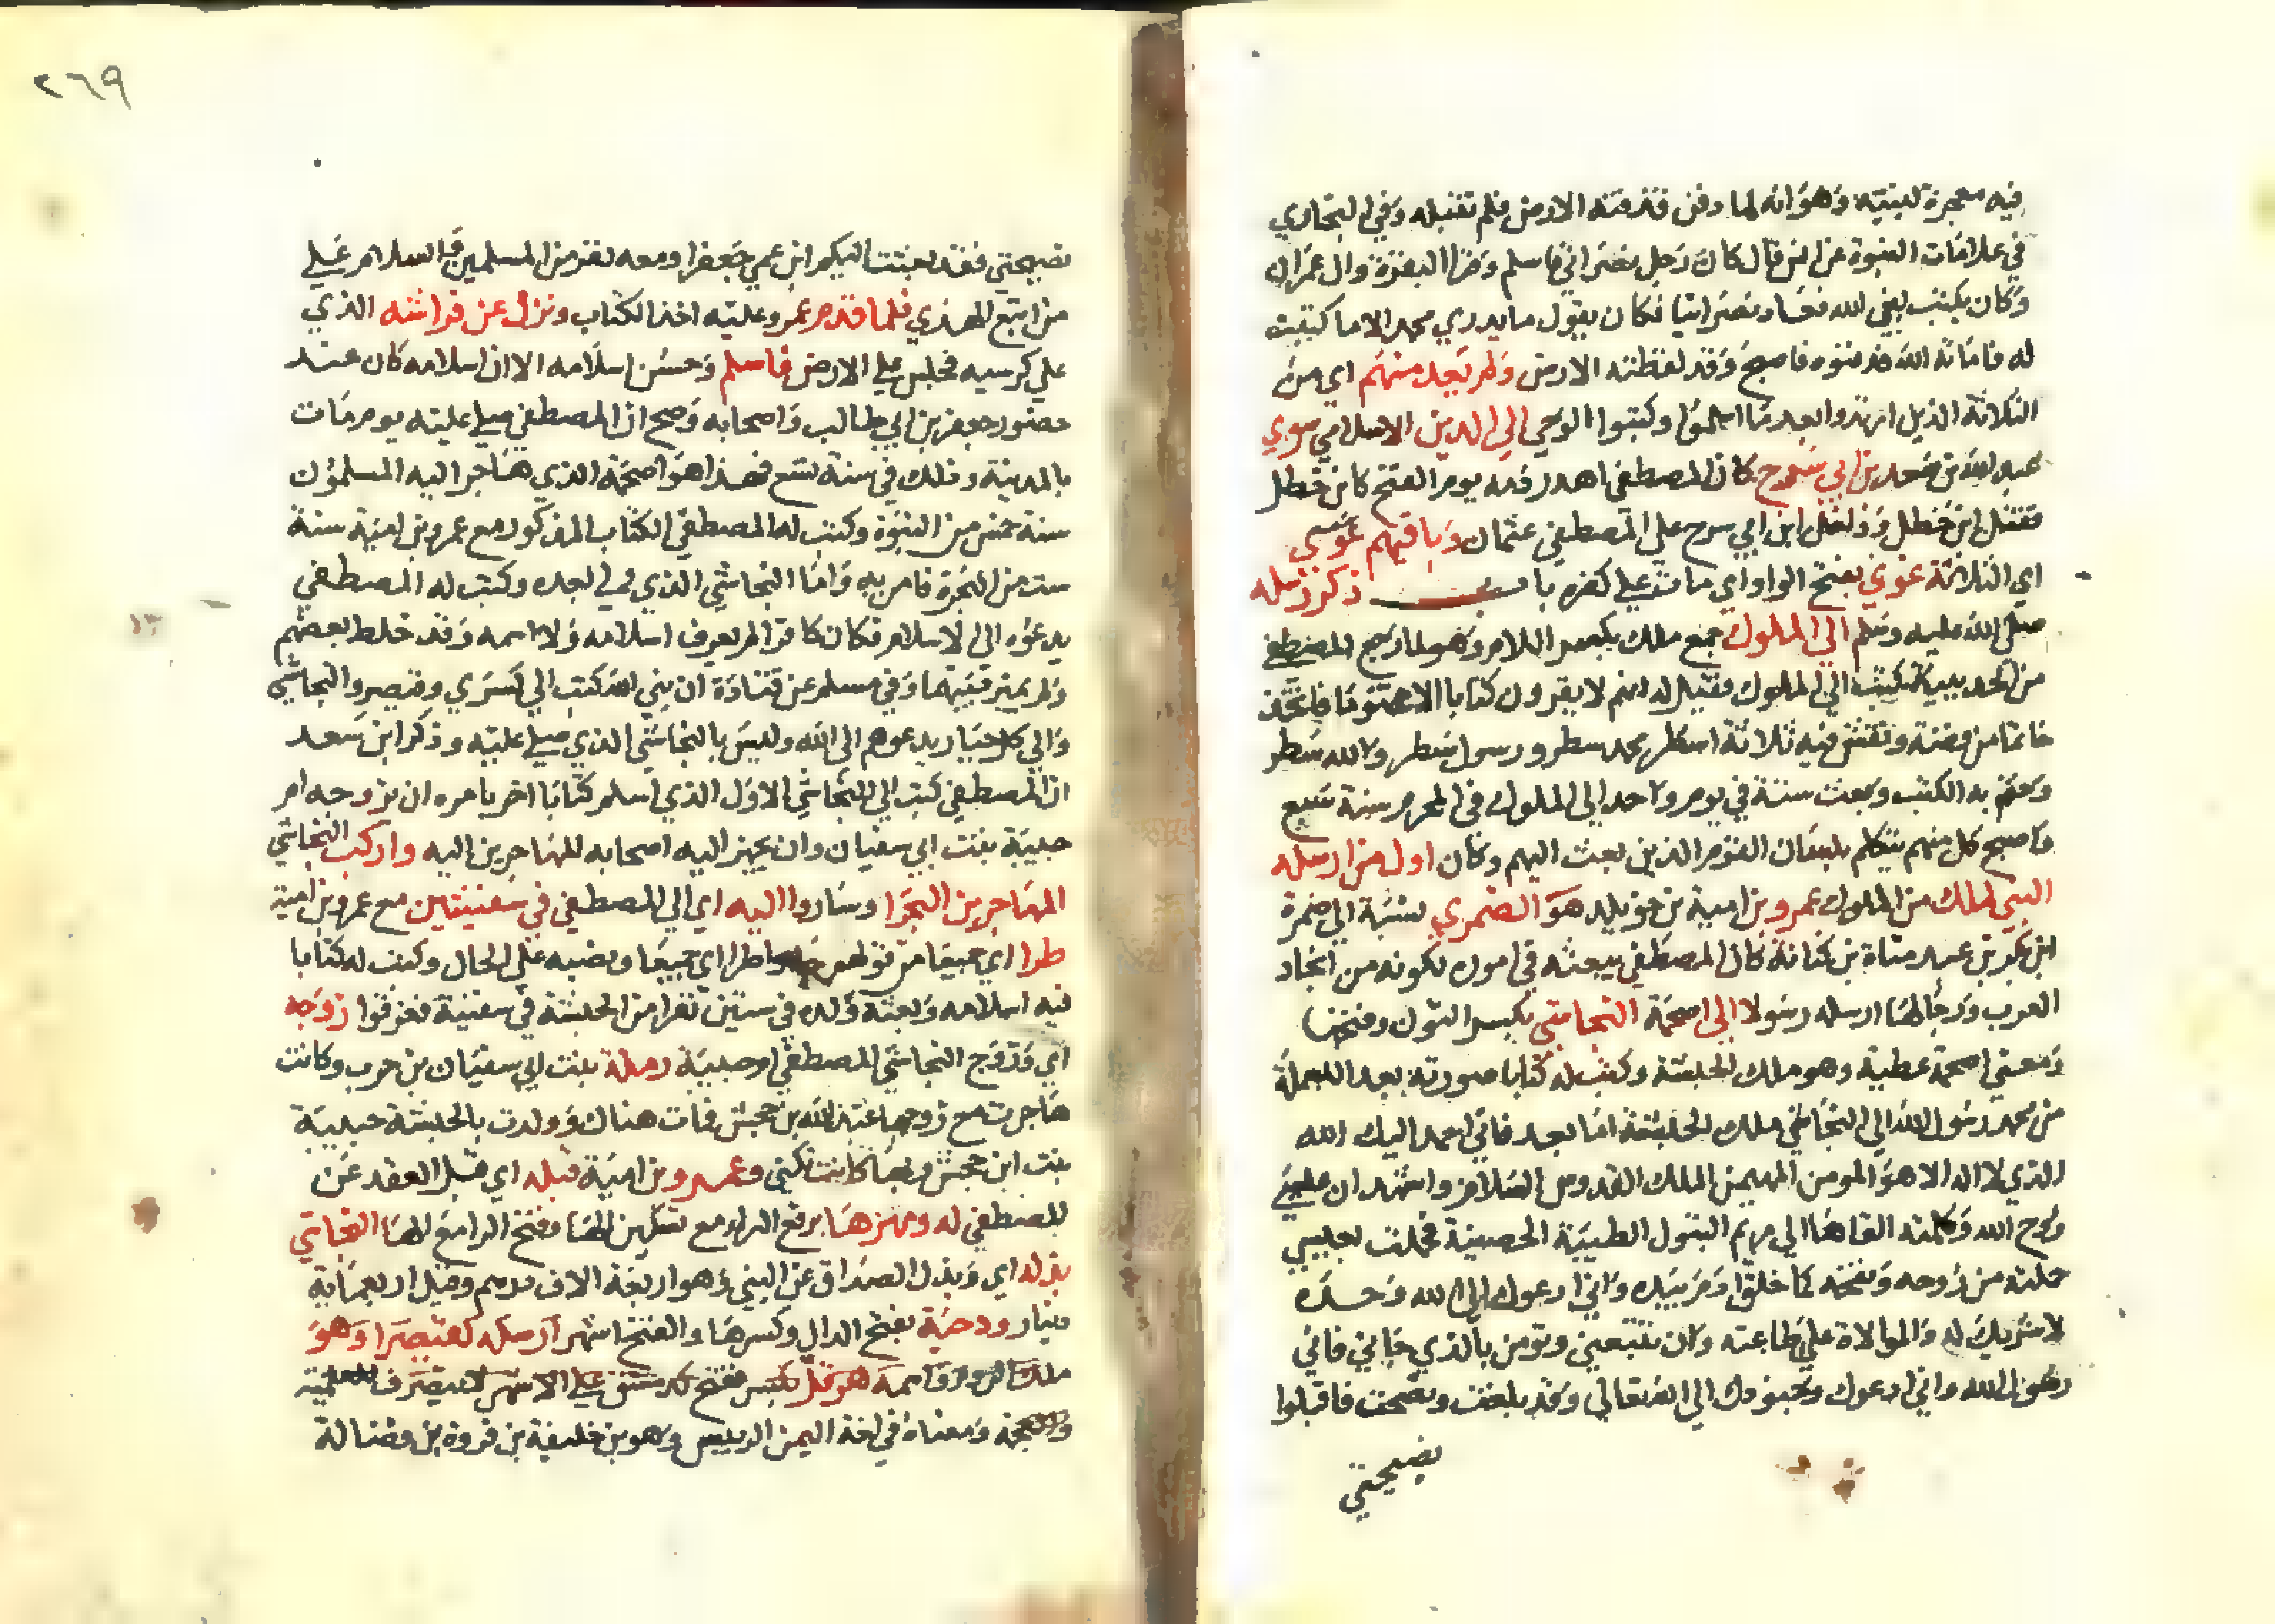 فيه معجزة لنبيه وهو انه لما دفن قذفته الارض فلم تقبله وفي البخاري
في علامات النبوة عن انس قال كان رجل نصراني فاسلم وقرا البقرة وال عمران
وكان يكتب للنبي فعاد نصرانيا فكان يقول ما يدري محمد الا ما كتبت
له فاماته الله فدفنوه فاصبح وقد لفظته الارض ولم يعد منهم اي من
الثلاثة الذين ارتدوا بعد ما اسلموا وكتبوا الوحي الي الدين الاسلامي سوي
عبد الله بن سعد بن ابي سرح كان المصطفي اهدر دمه يوم الفتح كابن خطل
فقتل ابن خطل ودخل ابن ابي سرح علي المصطفي عثمان وباقيهم غوي
اي الثلاثة غوي بفتح الواو اي مات علي كفره باب ذكر رسله
صلي الله عليه وسلم الي الملوك جمع ملك بكسر اللام وهو لما رجع المصطفي
من الحديبية كتب الي الملوك فقيل له انهم لا يقرون كتابا الا مختوما فاتخذ
خاتما من فضة ونقش فيه ثلاثة اسطر محمد سطر ورسول سطر والله سطر
وختم به الكتب وبعث ستة في يوم واحد الي الملوك في المحرم سنة سبع
واصبح كل منهم يتكلم بلسان القوم الذين بعث اليهم وكان اول من ارسله
النبي لملك من الملوك عمرو بن امية بن خويلد هو الضمري نسبة الي ضمرة
ابن بكر بن عبد مناة بن كنانة كان المصطفي يبعثه في اموره لكونه من انجاد
العرب ورجالها ارسله رسولا الي اصحمة النجاشي بكسر النون وفتحها
ومعني اصحمة عطية وهو ملك الحبشة وكتب له كتابا صورته بعد البسملة
من محمد رسول الله الي النجاشي ملك الحبشة اما بعد فاني احمد اليك الله
الذي لا اله الا هو المومن المهيمن الملك القدوس السلام واشهد ان عيسي
روح الله وكلمته القاها الي مريم البتول الطيبة الحصينة فحملت بعيسي
حملته من روحه ونفخه كما خلق ادم بيده واني ادعوك الي الله وحده
لا شريك له والموالاة علي طاعته وان تتبعني وتومن بالذي جاني فاني
رسول الله واني ادعوك وجنودك الي الله تعالي وقد بلغت ونصحت فاقبلوا
نصيحتي
٢٦٩
نصيحتي فقد بعثت اليكم ابن عمي جعفرا ومعه نفر من المسلمين والسلام علي
من اتبع الهدي فلما قدم عمرو عليه اخذ الكتاب ونزل عن فراشه الذي
علي كرسيه فجلس علي الارض فاسلم وحسن اسلامه الا ان اسلامه كان عند
حضور جعفر بن ابي طالب واصحابه وصح ان المصطفي صلي عليه يوم مات
بالمدينة وذلك في سنة تسع فهذا هو اصحمة الذي هاجر اليه المسلمون
سنة خمس من النبوة وكتب له المصطفي الكتاب المذكور مع عمرو بن امية سنة
ست من الهجرة فامن به واما النجاشي الذي ولي بعده وكتب له المصطفي
يدعوه الي الاسلام فكان كافرا لم يعرف اسلامه ولا اسمه وقد خلط بعضهم
ولم يميز بينهما وفي مسلم عن قتادة ان نبي الله كتب الي كسري وقيصر والنجاشي
والي كل جبار يدعوهم الي الله وليس بالنجاشي الذي صلي عليه وذكر ابن سعد
ان المصطفي كتب الي النجاشي الاول الذي اسلم كتابا اخر يامره ان يزوجه ام
حبيبة بنت ابي سفيان وان يجهز اليه اصحابه المهاجرين اليه واركب النجاشي
المهاجرين البحرا وساروا اليه اي الي المصطفي في سفينتين مع عمرو بن امية
طرا اي جميعا من قولهم طرا اي جميعا ونصبه علي الحال وكتب له كتابا
فيه اسلامه وبعثه ولده في ستين نفرا من الحبشة في سفينة فغرقوا زوجه
اي وزوج النجاشي المصطفي ام حبيبة رملة بنت ابي سفيان بن حرب وكانت
هاجرت مع زوجها عبد الله بن جحش فمات هناك وولدت بالحبشة حبيبة
بنت ابن جحش وبها كانت تكني وعمرو بن امية قبله اي قبل العقد عن
المصطفي له ومهرها برفع الراء مع تسكين الها وفتح الرا مع الها النجاشي
بذله اي وبذل الصداق عن النبي وهو اربعة الاف درهم وقيل اربعماية
دينار ودحية بفتح الدال وكسرها والفتح اشهر ارسله لقيصرا وهو
ملك الروم واسمه هرقل بكسر ففتح كدمشق علي الاشهر لا ينصرف للعلمية
والعجمة ومعناه في لغة اليمن الرييس وهو بن خليفة بن فروة بن فضالة
١٣